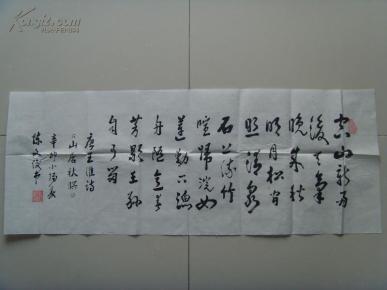 空山新雨
後天氣
晚來秋
明月松間
照清泉
石上流竹
喧歸浣女
蓮動下漁
舟隨意春
芳歇王孫
自可留
唐王維詩
《山居秋暝》
辛卯小陽春
陳文俊書
Kongfz.com